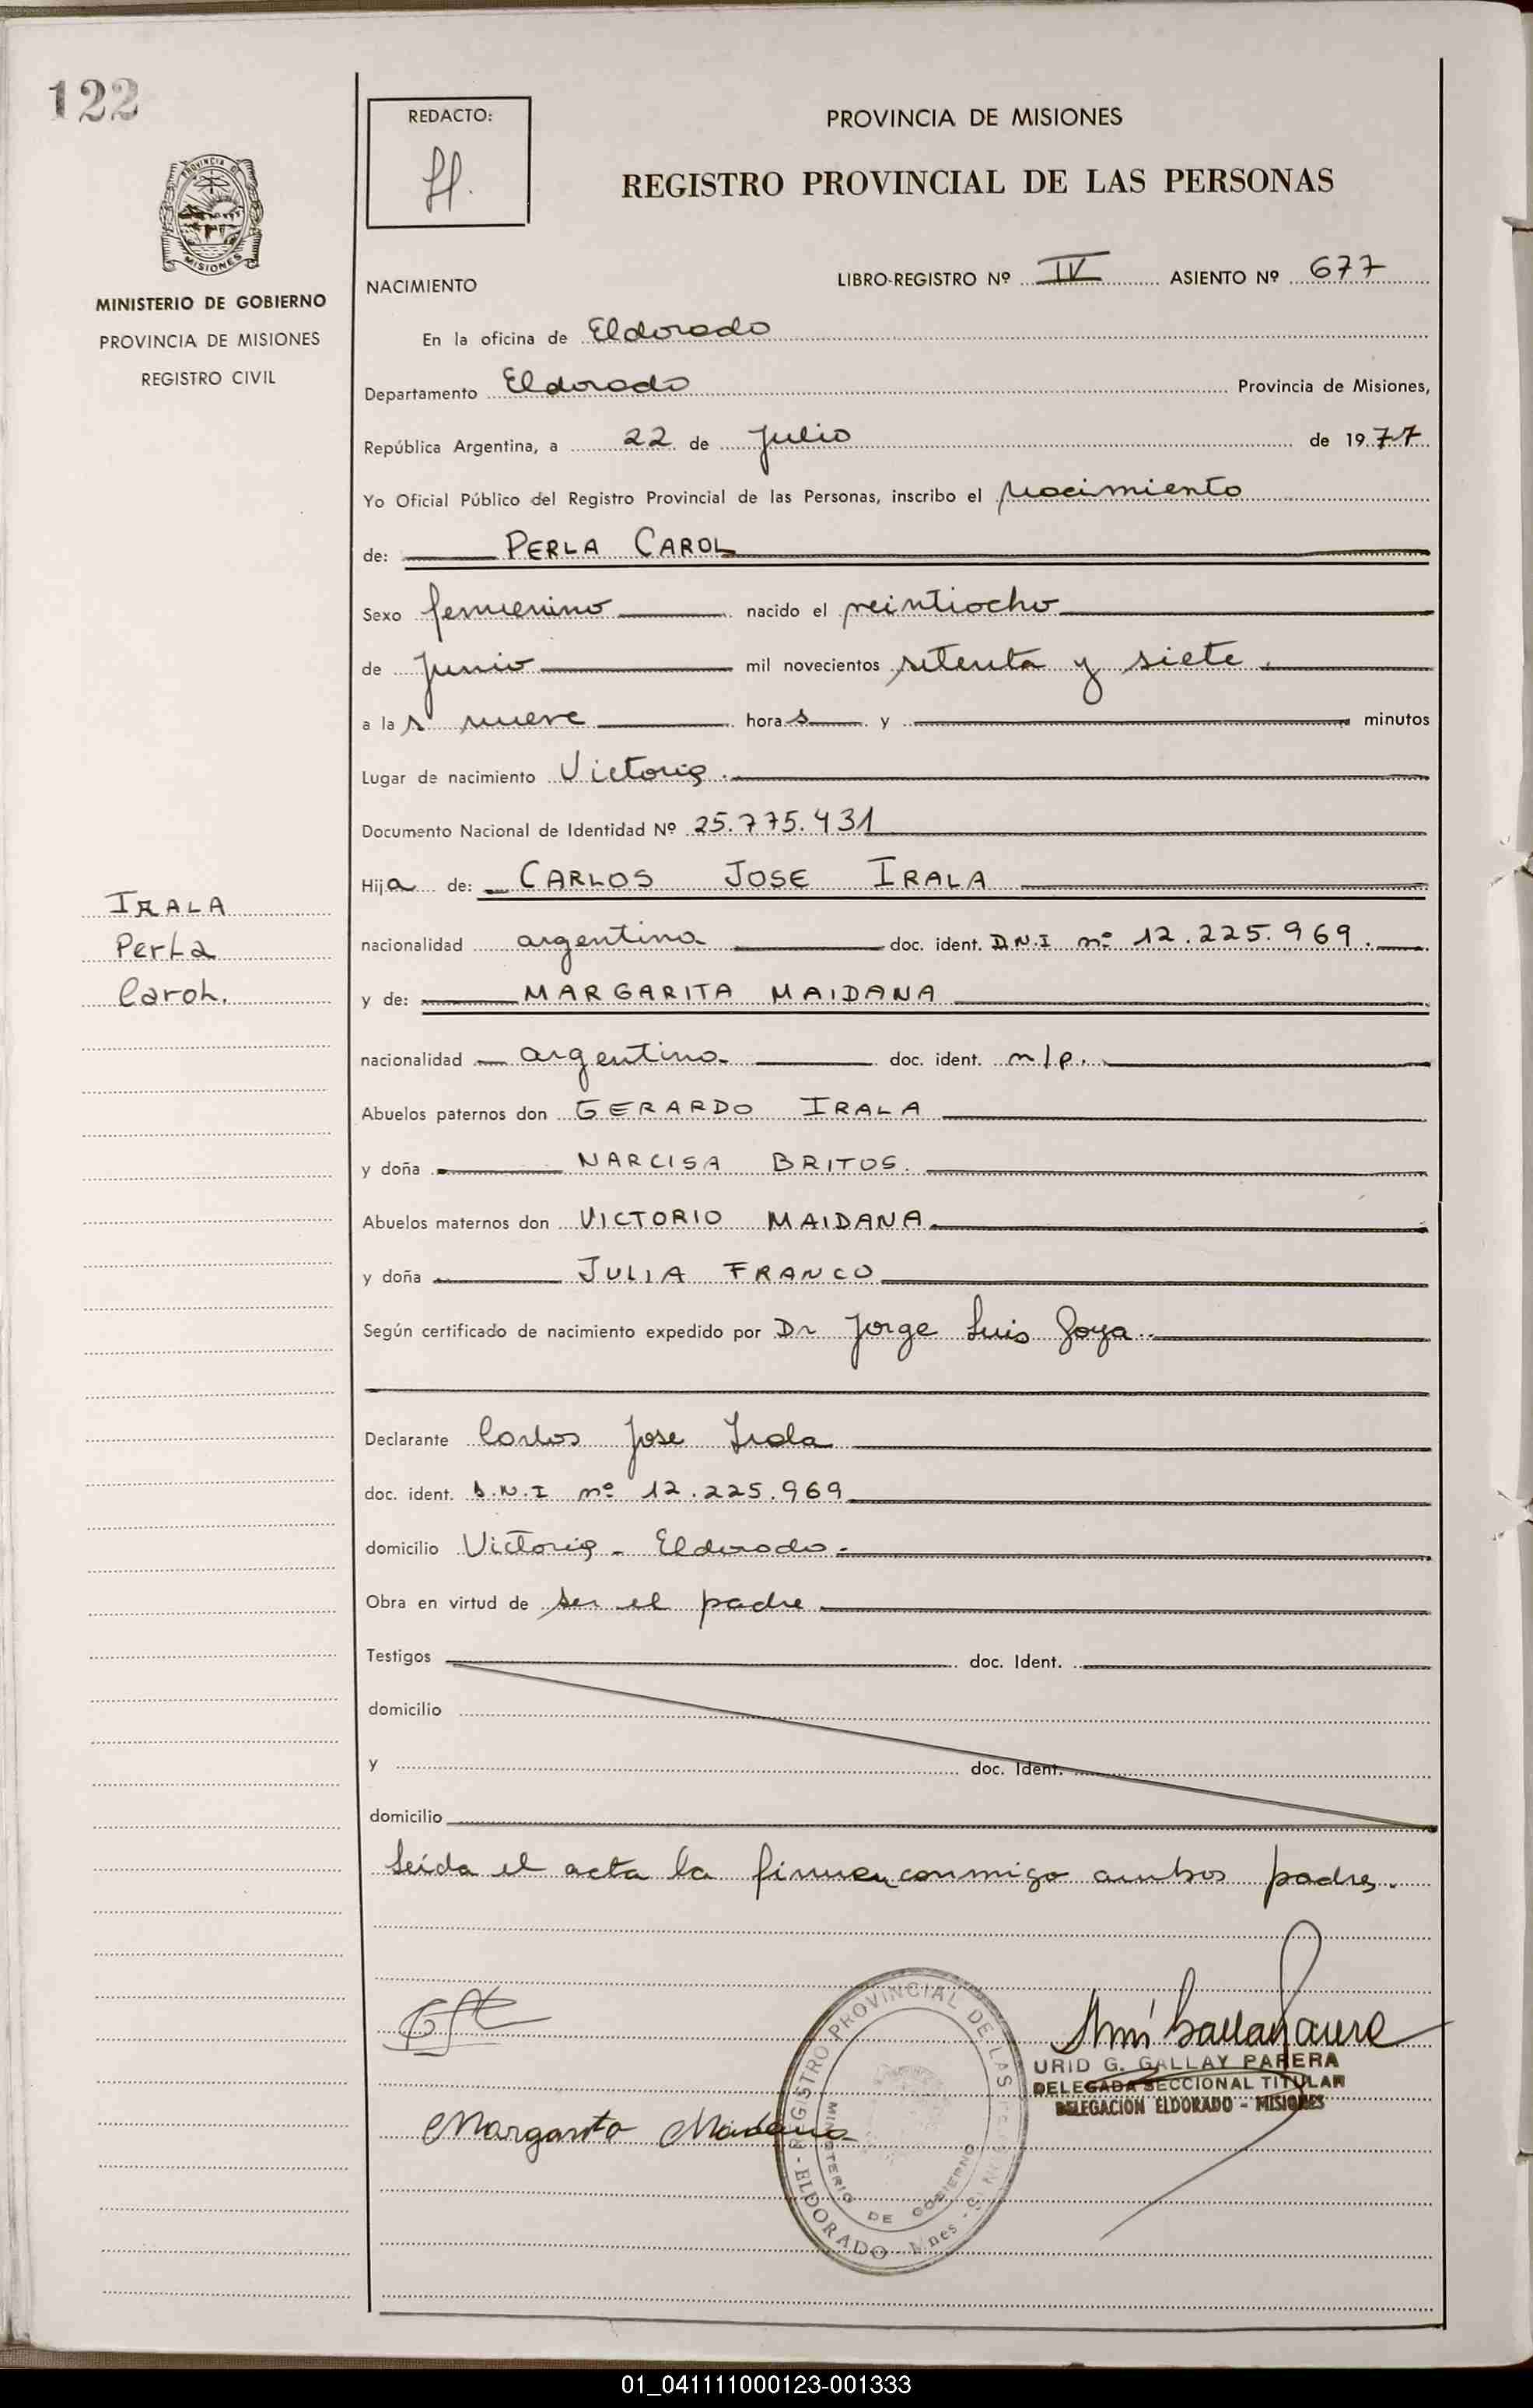 122
REDACTO:
PROVINCIA DE MISIONES
REGISTRO PROVINCIAL DE LAS PERSONAS
PROVINCIA DE
MISIONES
MINISTERIO DE GOBIERNO
PROVINCIA DE MISIONES
REGISTRO CIVIL
NACIMIENTO LIBRO-REGISTRO Nº IV ASIENTO Nº 677
En la oficina de Eldorado
Departamento Eldorado Provincia de Misiones,
República Argentina, a 22 de Julio de 1977
Yo Oficial Público del Registro Provincial de las Personas, inscribo el Nacimiento
de: PERLA CAROL
Sexo femenino nacido el veintiocho
de Junio mil novecientos setenta y siete.
a las nueve horas y minutos
Lugar de nacimiento Victoria.
Documento Nacional de Identidad Nº 25.775.431
Hija de: CARLOS JOSE IRALA
IRALA
Perla
Carol.
nacionalidad argentina doc. ident. D.N.I nº 12.225.969.
y de: MARGARITA MAIDANA
nacionalidad argentina doc. ident. n/p.
Abuelos paternos don GERARDO IRALA
y doña NARCISA BRITOS.
Abuelos maternos don VICTORIO MAIDANA
y doña JULIA FRANCO
Según certificado de nacimiento expedido por Dr Jorge Luis Goya.
Declarante Carlos Jose Irala
doc. ident. D.N.I nº 12.225.969
domicilio Victoria - Eldorado.
Obra en virtud de ser el padre
Testigos doc. Ident.
domicilio
y doc. Ident.
domicilio
Leída el acta la firman conmigo ambos padres.
URID G. GALLAY PARERA
DELEGADA SECCIONAL TITULAR
DELEGACION ELDORADO - MISIONES
Margarita Maidana
REGISTRO PROVINCIAL DE LAS
MINISTERIO DE GOBIERNO
ELDORADO - Mnes -
01_041111000123-001333